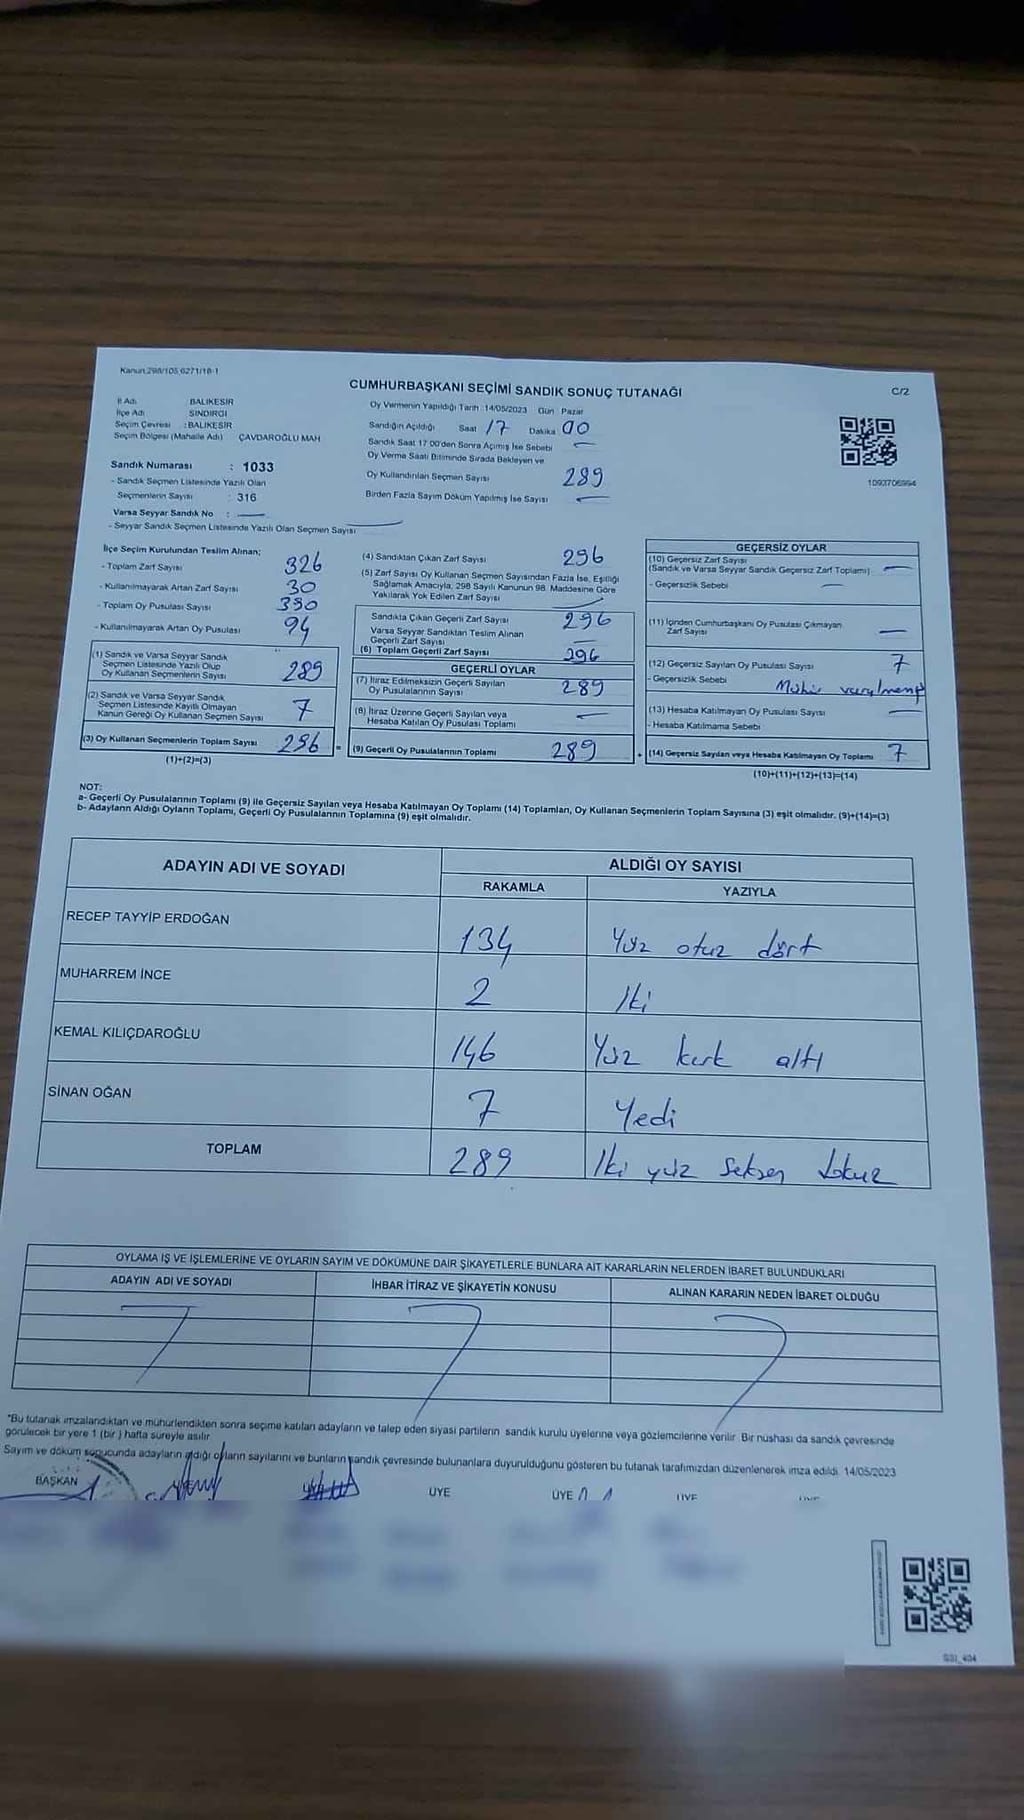 Kanun:298/105,6271/18-1
CUMHURBAŞKANI SEÇİMİ SANDIK SONUÇ TUTANAĞI
C/2
İl Adı : BALIKESİR
İlçe Adı : SINDIRGI
Seçim Çevresi : BALIKESİR
Seçim Bölgesi (Mahalle Adı) ÇAVDAROĞLU MAH
Sandık Numarası : 1033
- Sandık Seçmen Listesinde Yazılı Olan
Seçmenlerin Sayısı : 316
Varsa Seyyar Sandık No : —
- Seyyar Sandık Seçmen Listesinde Yazılı Olan Seçmen Sayısı —
Oy Vermenin Yapıldığı Tarih :14/05/2023 Gün Pazar
Sandığın Açıldığı Saat 17 Dakika 00
Sandık Saat 17:00'den Sonra Açılmış İse Sebebi —
Oy Verme Saati Bitiminde Sırada Bekleyen ve
Oy Kullandırılan Seçmen Sayısı 289
Birden Fazla Sayım Döküm Yapılmış İse Sayısı —
1093706994
İlçe Seçim Kurulundan Teslim Alınan;
- Toplam Zarf Sayısı 326
- Kullanılmayarak Artan Zarf Sayısı 30
- Toplam Oy Pusulası Sayısı 390
- Kullanılmayarak Artan Oy Pusulası 94
(1) Sandık ve Varsa Seyyar Sandık
Seçmen Listesinde Yazılı Olup
Oy Kullanan Seçmenlerin Sayısı 289
(2) Sandık ve Varsa Seyyar Sandık
Seçmen Listesinde Kayıtlı Olmayan
Kanun Gereği Oy Kullanan Seçmen Sayısı 7
(3) Oy Kullanan Seçmenlerin Toplam Sayısı 296 =
(1)+(2)=(3)
(4) Sandıktan Çıkan Zarf Sayısı 296
(5) Zarf Sayısı Oy Kullanan Seçmen Sayısından Fazla İse, Eşitliği
Sağlamak Amacıyla, 298 Sayılı Kanunun 98. Maddesine Göre
Yakılarak Yok Edilen Zarf Sayısı —
Sandıkta Çıkan Geçerli Zarf Sayısı 296
Varsa Seyyar Sandıktan Teslim Alınan
Geçerli Zarf Sayısı —
(6) Toplam Geçerli Zarf Sayısı 296
GEÇERLİ OYLAR
(7) İtiraz Edilmeksizin Geçerli Sayılan
Oy Pusulalarının Sayısı 289
(8) İtiraz Üzerine Geçerli Sayılan veya
Hesaba Katılan Oy Pusulası Toplamı —
(9) Geçerli Oy Pusulalarının Toplamı 289 +
GEÇERSİZ OYLAR
(10) Geçersiz Zarf Sayısı
(Sandık ve Varsa Seyyar Sandık Geçersiz Zarf Toplamı) —
- Geçersizlik Sebebi —
(11) İçinden Cumhurbaşkanı Oy Pusulası Çıkmayan
Zarf Sayısı —
(12) Geçersiz Sayılan Oy Pusulası Sayısı 7
- Geçersizlik Sebebi Mühür
(13) Hesaba Katılmayan Oy Pusulası Sayısı —
- Hesaba Katılmama Sebebi
(14) Geçersiz Sayılan veya Hesaba Katılmayan Oy Toplamı 7
(10)+(11)+(12)+(13)=(14)
NOT:
a- Geçerli Oy Pusulalarının Toplamı (9) ile Geçersiz Sayılan veya Hesaba Katılmayan Oy Toplamı (14) Toplamları, Oy Kullanan Seçmenlerin Toplam Sayısına (3) eşit olmalıdır. (9)+(14)=(3)
b- Adayların Aldığı Oyların Toplamı, Geçerli Oy Pusulalarının Toplamına (9) eşit olmalıdır.
ADAYIN ADI VE SOYADI ALDIĞI OY SAYISI
RAKAMLA YAZIYLA
RECEP TAYYİP ERDOĞAN 134 Yüz otuz dört
MUHARREM İNCE 2 İki
KEMAL KILIÇDAROĞLU 146 Yüz kırk altı
SİNAN OĞAN 7 Yedi
TOPLAM 289 İki yüz seksen dokuz
OYLAMA İŞ VE İŞLEMLERİNE VE OYLARIN SAYIM VE DÖKÜMÜNE DAİR ŞİKAYETLERLE BUNLARA AİT KARARLARIN NELERDEN İBARET BULUNDUKLARI
ADAYIN ADI VE SOYADI İHBAR İTİRAZ VE ŞİKAYETİN KONUSU ALINAN KARARIN NEDEN İBARET OLDUĞU
*Bu tutanak imzalandıktan ve mühürlendikten sonra seçime katılan adayların ve talep eden siyasi partilerin sandık kurulu üyelerine veya gözlemcilerine verilir. Bir nüshası da sandık çevresinde
görülecek bir yere 1 (bir ) hafta süreyle asılır.
Sayım ve döküm sonucunda adayların aldığı oyların sayılarını ve bunların sandık çevresinde bulunanlara duyurulduğunu gösteren bu tutanak tarafımızdan düzenlenerek imza edildi. 14/05/2023
BAŞKAN ÜYE ÜYE ÜYE